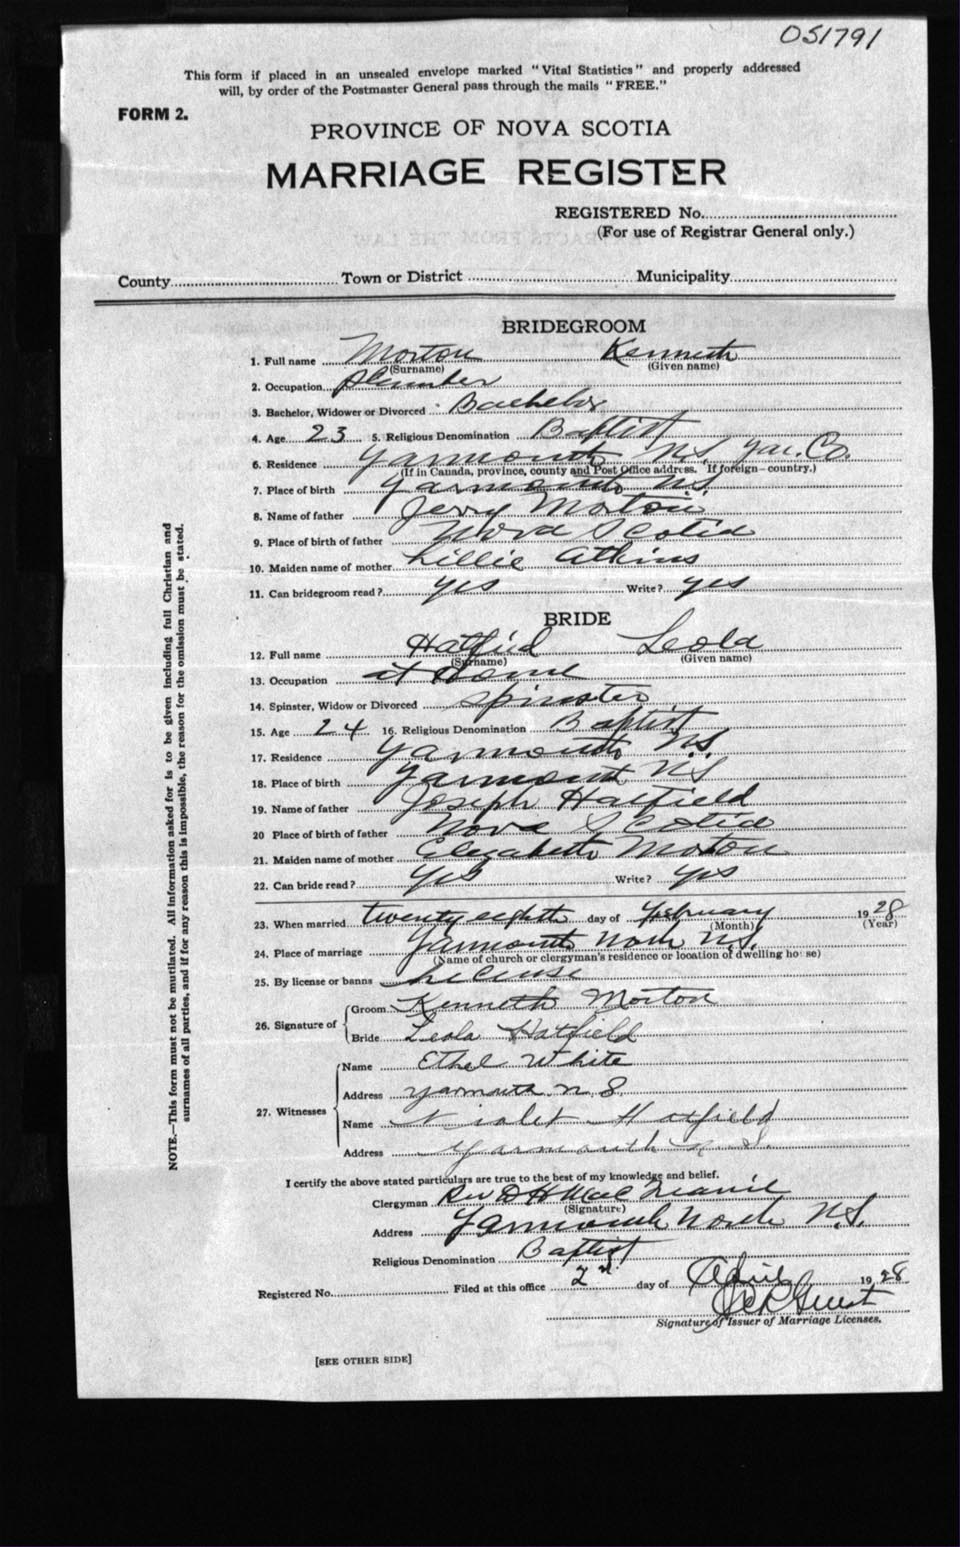 051791
This form if placed in an unsealed envelope marked "Vital Statistics" and properly addressed
will, by order of the Postmaster General pass through the mails "FREE."
FORM 2.
PROVINCE OF NOVA SCOTIA
MARRIAGE REGISTER
REGISTERED No.
(For use of Registrar General only.)
County Town or District Municipality
BRIDEGROOM
1. Full name Morton Kenneth
(Surname) (Given name)
2. Occupation Plumber
3. Bachelor, Widower or Divorced Bachelor
4. Age 23 5. Religious Denomination Baptist
6. Residence Yarmouth N.S. Yar. Co.
(If in Canada, province, county and Post Office address. If foreign—country.)
7. Place of birth Yarmouth N.S.
8. Name of father Jerry Morton
9. Place of birth of father Nova Scotia
10. Maiden name of mother Lillie Atkins
11. Can bridegroom read? yes Write? yes
BRIDE
12. Full name Hatfield Leola
(Surname) (Given name)
13. Occupation at Home
14. Spinster, Widow or Divorced Spinster
15. Age 24 16. Religious Denomination Baptist
17. Residence Yarmouth N.S.
18. Place of birth Yarmouth N.S
19. Name of father Joseph Hatfield
20 Place of birth of father Nova Scotia
21. Maiden name of mother Elizabeth Morton
22. Can bride read? yes Write? yes
23. When married twenty eighth day of February 1928
(Month) (Year)
24. Place of marriage Yarmouth North N.S.
(Name of church or clergyman's residence or location of dwelling house)
25. By license or banns License
26. Signature of Groom Kenneth Morton
Bride Leola Hatfield
27. Witnesses Name Ethel White
Address Yarmouth N.S.
Name Violet Hatfield
Address Yarmouth N.S.
I certify the above stated particulars are true to the best of my knowledge and belief.
Clergyman Rev D H Mac
(Signature)
Address Yarmouth North N.S.
Religious Denomination Baptist
Registered No. Filed at this office 2nd day of April 1928
Signature of Issuer of Marriage Licenses.
[SEE OTHER SIDE]
NOTE.—This form must not be mutilated. All information asked for is to be given including full Christian and
surnames of all parties, and if for any reason this is impossible, the reason for the omission must be stated.